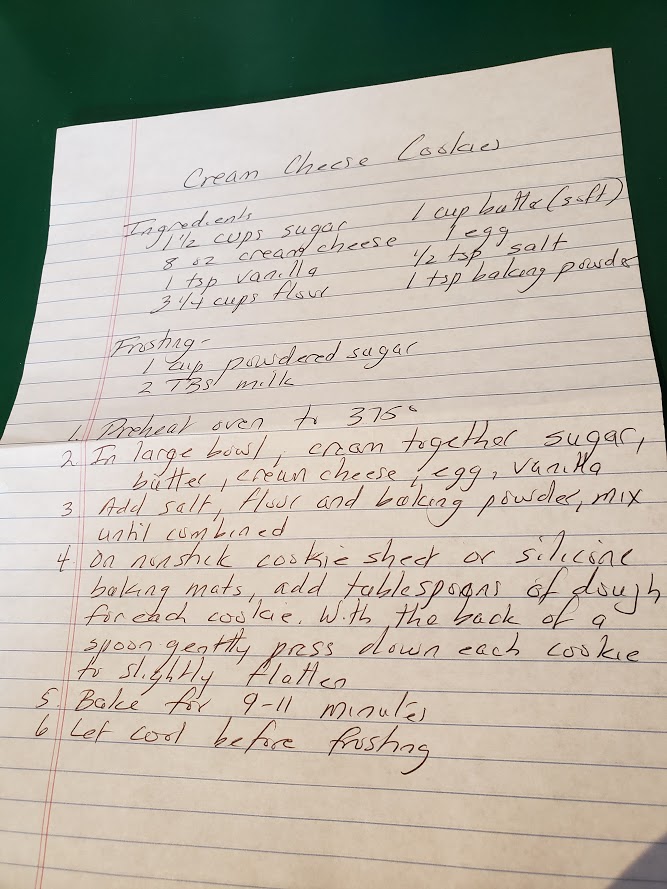 Cream Cheese Cookies
Ingredients
1 1/2 cups sugar 1 cup butter (soft)
8 oz cream cheese 1 egg
1 tsp vanilla 1/2 tsp salt
3 1/4 cups flour 1 tsp baking powder
Frosting -
1 cup powdered sugar
2 TBS milk
1. Preheat oven to 375°
2 In large bowl, cream together sugar,
butter, cream cheese, egg, vanilla
3 Add salt, flour and baking powder, mix
until combined
4. On nonstick cookie sheet or silicone
baking mats, add tablespoons of dough
for each cookie. With the back of a
spoon gently press down each cookie
to slightly flatten
5. Bake for 9-11 minutes
6 Let cool before frosting